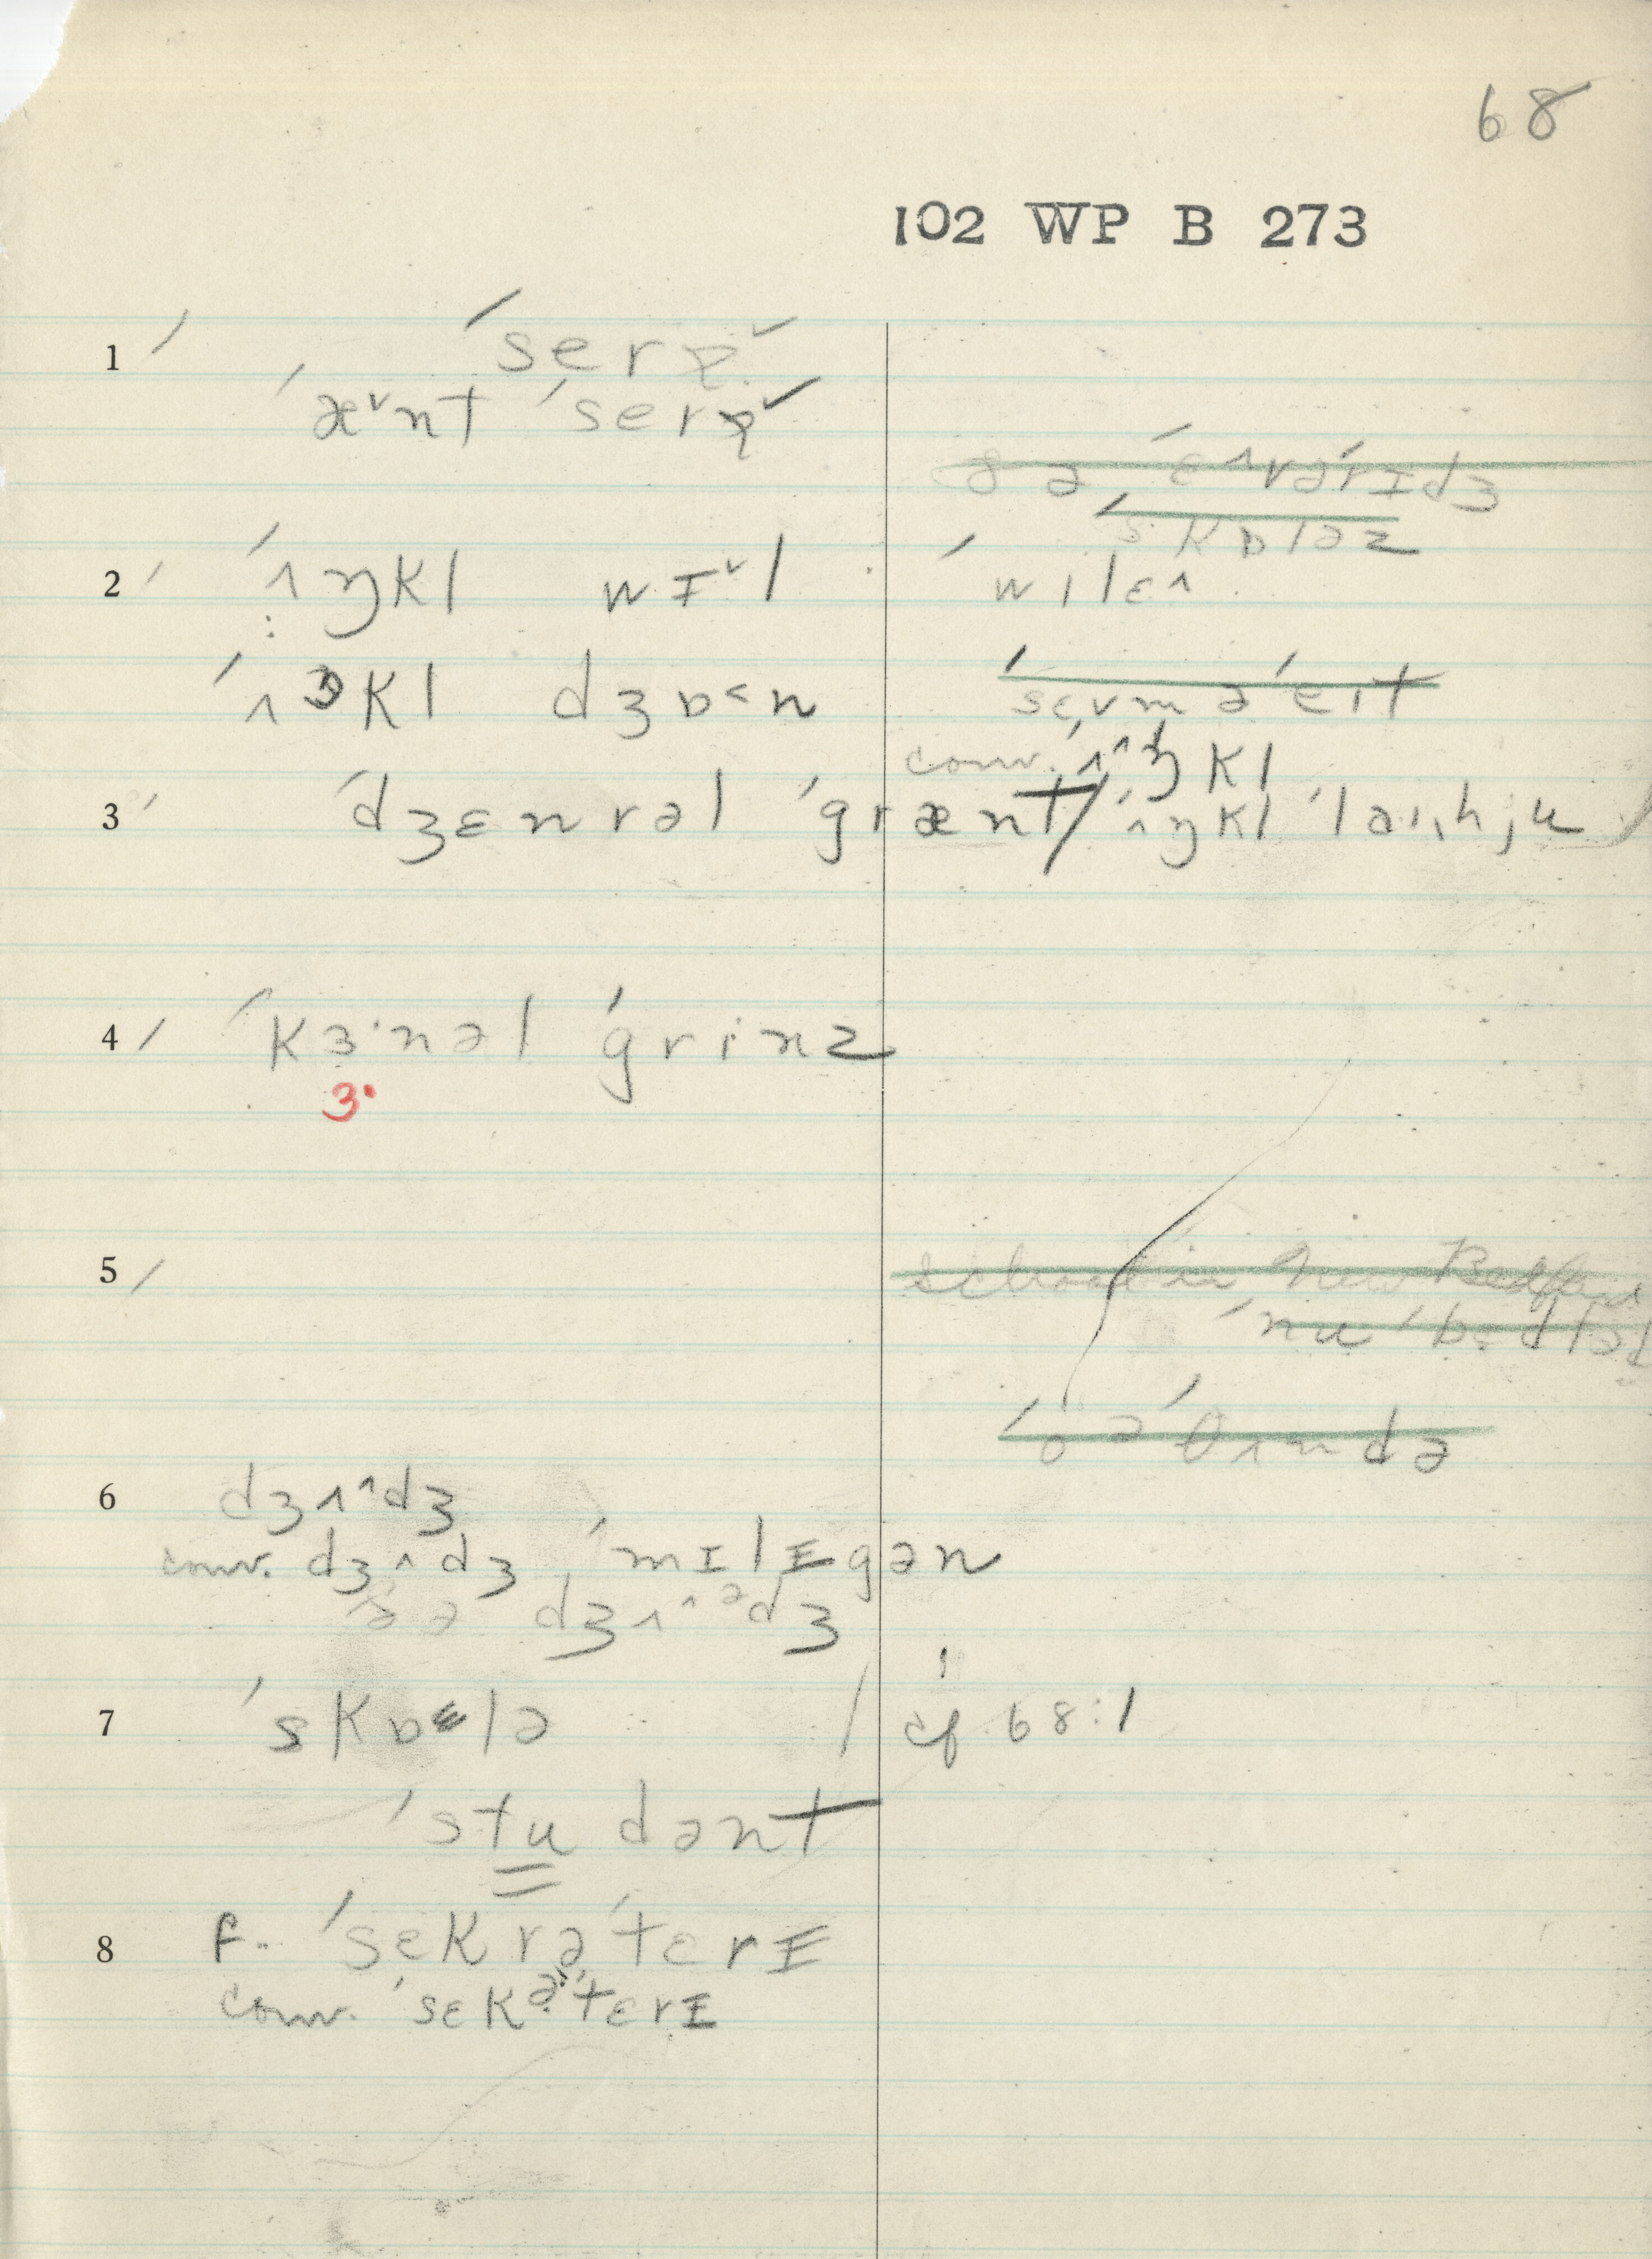 68
102 WP B 273
1 ˈserə
ˈæ˅nt ˈserə
ðə ˈɛ^vərɪdʒ
ˈskɒləz
2 ˈʌŋkl wɪ˅l
ˈwilɛ^
ˈʌŋkl dʒɒ˂n
conv. ˈʌ^ŋkl
3 ˈdʒɛnrəl ˈgrænt / ˈʌŋkl ˈlaɪˌhju
4 ˈkɜ·nəl ˈgrinz
ɜ·
5
school in New Bedford
ˈnu ˈbɛdfəd
6 dʒʌ^dʒ
conv. dʒʌdʒ ˈmɪlɪgən
ə ə dʒʌ^ᵊdʒ
7 ˈskɒlə / cf 68:1
ˈstudənt
8 F. ˈsɛkrəˈtɛrɪ
conv. ˈsɛkəˈtɛrɪ